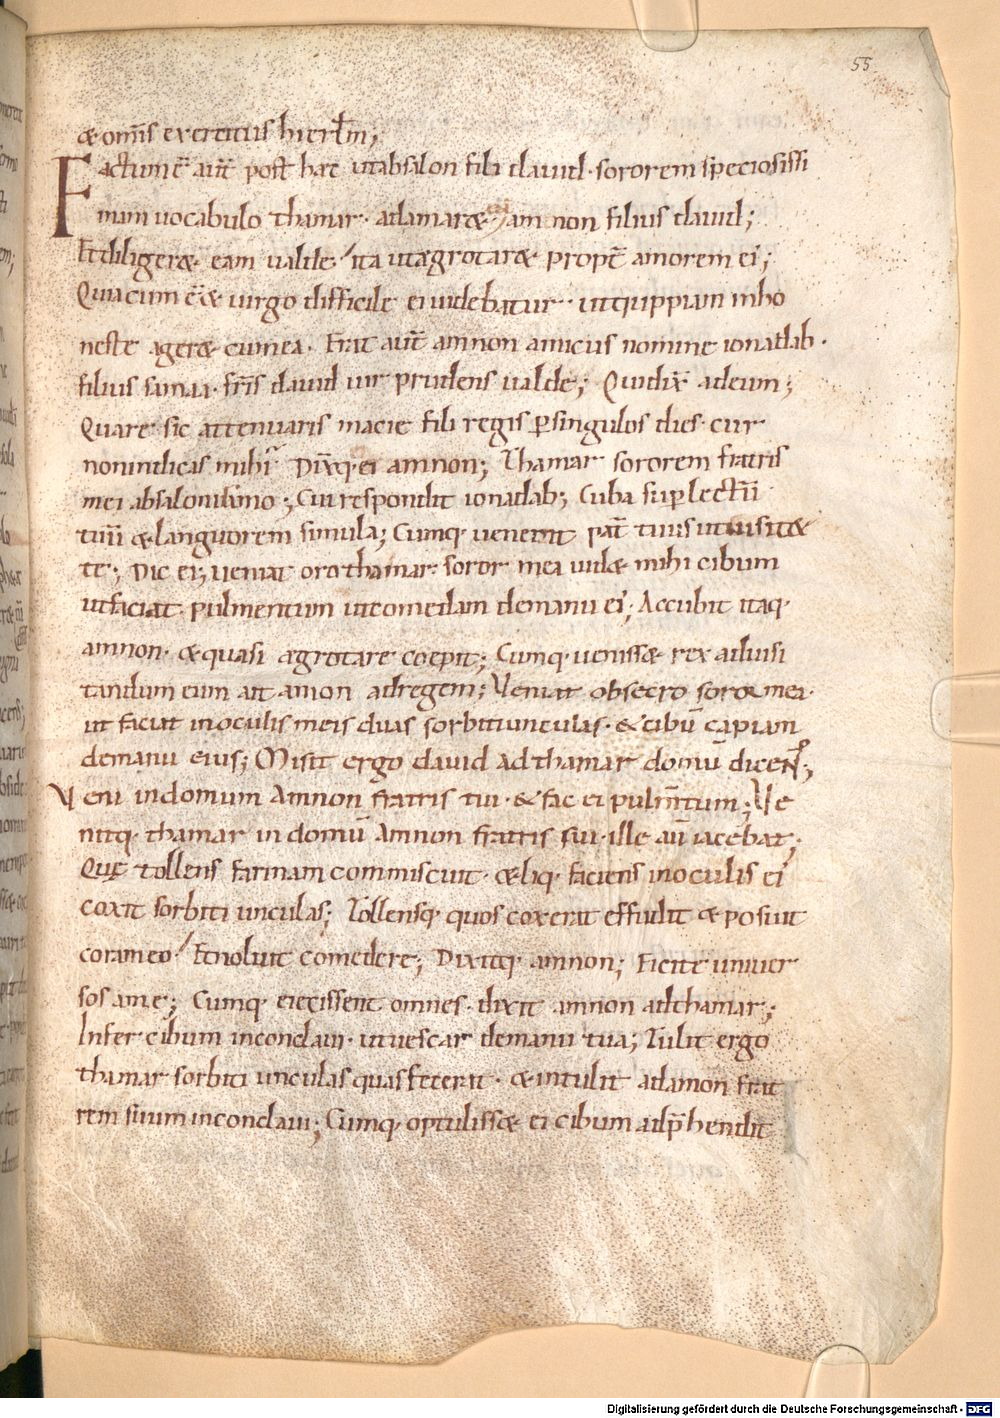 55
& om̄is exercitus hierłm;
Factum ē aut̄ post hae utabsalon fili dauid· sororem speciosissi
mam uocabulo thamar· adamar& am non filius dauid;
Etdiliger& eam ualde· ita utęgrotar& propt̄ amorem ei;
Quiacum eē& uirgo difficile ei uidebatur· utquippiam inho
neste ager& cumea· Erat aut̄ amnon amicus nomine ionadab·
filius samaa· fr̄is dauid uir prudens ualde; Quidix̄ adeum;
Quare sic attenuaris macie fili regis ꝑsingulos dies· cur
nonindicas mihi Dixitq· ei amnon; Thamar sororem fratris
mei absalon amo; Cui respondit ionadab; Cuba suꝑlectū
tuū & languorem simula; Cumq· uenerit pat̄ tuus utuisit&
te; Dic ei; ueniat oro thamar soror mea utd& mihi cibum
utfaciat pulmentum utcomedam demanu ei; Accubit itaq·
amnon· & quasi ęgrotare coepit; Cumq·ueniss& rex aduisi
tandum eum ait amon adregem; Ueniat obsecro soror mea·
ut faciat inoculis meis duas sorbitiunculas· & cibū capiam
demanu eius; Misit ergo dauid adthamar domū dicens;
Ueni indomum Amnon fratris tui· & fac ei pulm̄tum; Ue
nitq· thamar in domū Amnon fratris sui· ille au̅ iacebat;
Quę tollens farinam commiscuit· & liq· faciens inoculis ei
coxit sorbiti unculas; Tollensq· quos coxerat effudit & posuit
coram eo· Etnoluit comedere; Dixitq· amnon; Eicite uniuer
sos ame; Cumq· eiecissent omnes· dixit amnon adthamar;
Infer cibum inconclaui· utuescar demanu tua; Tulit ergo
thamar sorbiti unculas quas fecerat· & intulit adamon frat
rem suum inconclaui; Cumq· optuliss& ei cibum adp̄hendit
Digitalisierung gefördert durch die Deutsche Forschungsgemeinschaft - DFG